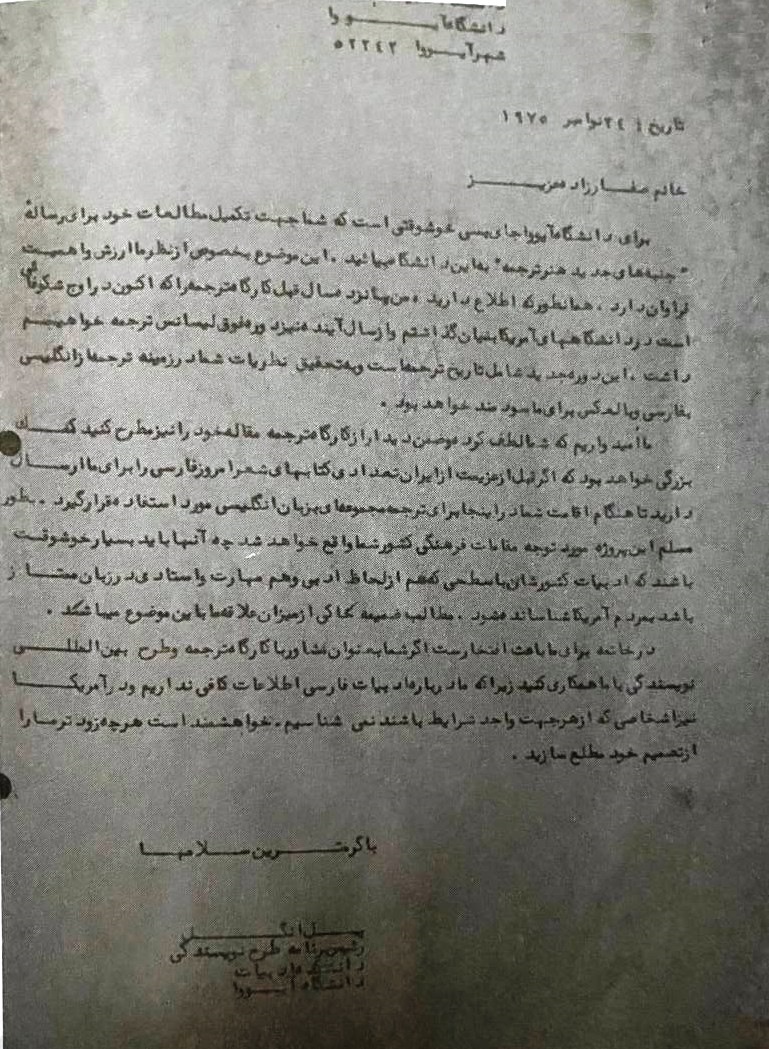 دانشگاه آیووا
شهر آیووا ۵۲۲۴۲
تاریخ : ۲۴ نوامبر ۱۹۷۵
خانم صفارزاده عزیز
برای دانشگاه آیووا جای بسی خوشوقتی است که شما جهت تکمیل مطالعات خود برای رسالهٔ
"جنبه‌های جدید هنر ترجمه" به این دانشگاه میائید . این موضوع بخصوص از نظر ما ارزش و اهمیت
فراوان دارد . همانطور که اطلاع دارید ، من پانزده سال قبل کارگاه ترجمه را که اکنون در اوج شکوفائی
است در دانشگاههای آمریکا بنیان گذاشتم و از سال آینده نیز دوره فوق لیسانس ترجمه خواهیم
داشت . این دوره جدید شامل تاریخ ترجمه است و به تحقیق نظریات شما در زمینه ترجمه از انگلیسی
بفارسی و بالعکس برای ما سودمند خواهد بود .
ما امیدواریم که شما لطف کرده و ضمن دیدار از کارگاه ترجمه مقاله خود را نیز مطرح کنید کمک
بزرگی خواهد بود که اگر قبل از عزیمت از ایران تعدادی کتابهای شعر امروز فارسی را برای ما ارسال
دارید تا هنگام اقامت شما در اینجا برای ترجمه مجموعه‌ای بزبان انگلیسی مورد استفاده قرار گیرد . بطور
مسلم این پروژه مورد توجه مقامات فرهنگی کشور شما واقع خواهد شد چه آنها باید بسیار خوشوقت
باشند که ادبیات کشورشان با سطحی که هم از لحاظ ادبی و هم مهارت و استادی در زبان ممتاز
باشد بمردم آمریکا شناسانده شود . مطالب ضمیمه حاکی از میزان علاقه ما با این موضوع میباشد .
در خاتمه برای ما باعث افتخار است اگر شما به عنوان مشاور با کارگاه ترجمه و طرح بین المللی
نویسندگی با ما همکاری کنید زیرا که ما درباره ادبیات فارسی اطلاعات کافی نداریم و در آمریکا
نیز اشخاصی که از هر جهت واجد شرایط باشند نمی شناسیم . خواهشمند است هر چه زودتر ما را
از تصمیم خود مطلع سازید .
با گرمترین سلامها
پل انگل
رئیس برنامه طرح نویسندگی
دانشکده ادبیات
دانشگاه آیووا